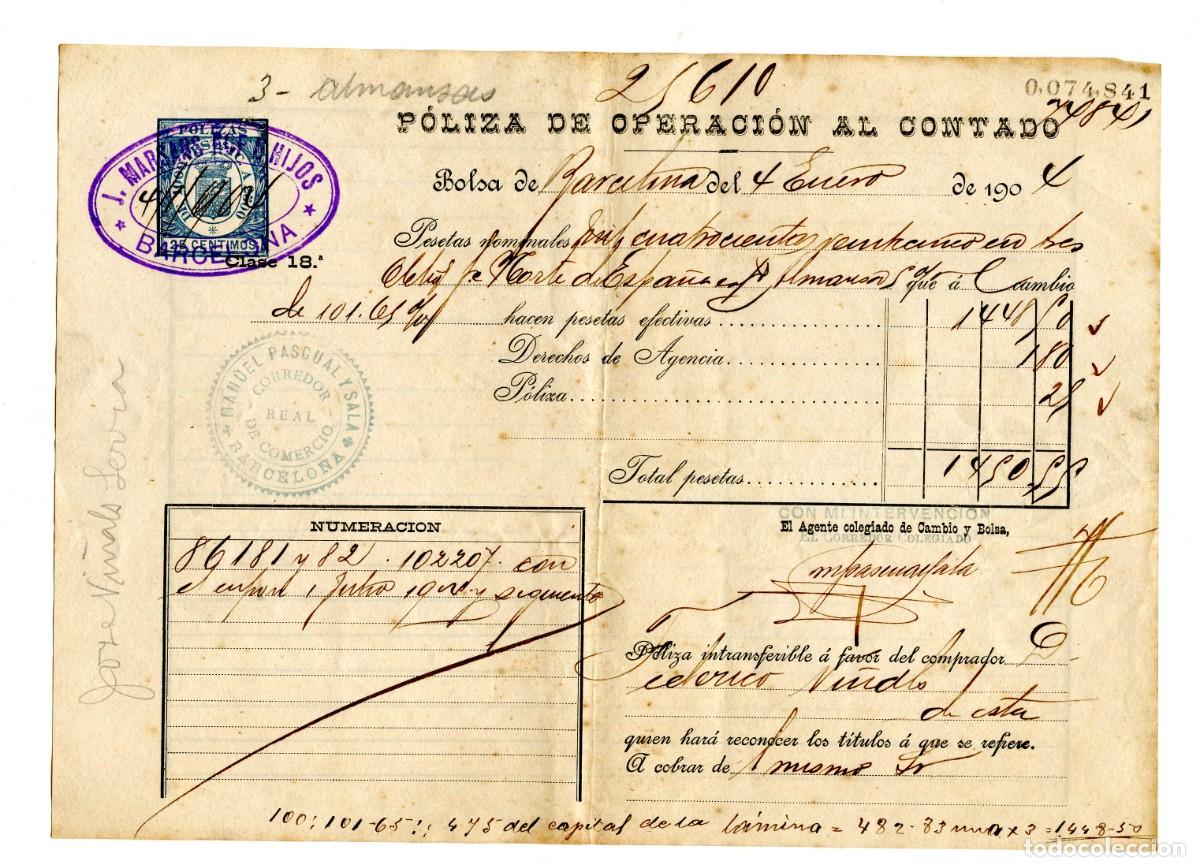 3 - almansas
25610
0,074,841
74841
PÓLIZA DE OPERACIÓN AL CONTADO
PÓLIZAS
25 CENTIMOS
J. MAR HIJOS
BARCELONA
Clase 18.ª
Bolsa de Barcelona del 4 Enero de 1904
Pesetas nominales mil cuatrocientas veinticinco en tres
Oblig Norte de España Almansa 5% que á l cambio
de 101.65 % hacen pesetas efectivas 1448 50
Derechos de Agencia 1 80
Póliza 25
Total pesetas 1450 55
MANUEL PASCUAL Y SALA
CORREDOR
REAL
DE COMERCIO
BARCELONA
Jose Viñals
NUMERACION
86181 y 82 . 102207 con
el cupon 1 Julio y siguientes
CON MI INTERVENCIÓN
El Agente colegiado de Cambio y Bolsa,
EL CORREDOR COLEGIADO
Póliza intransferible á favor del comprador D.
Federico
de esta
quien hará reconocer los títulos á que se refiere.
A cobrar de mismo Sr
100:101-65:: 475 del capital de la lámina = 482-83 x 3 = 1448-50
todocoleccion